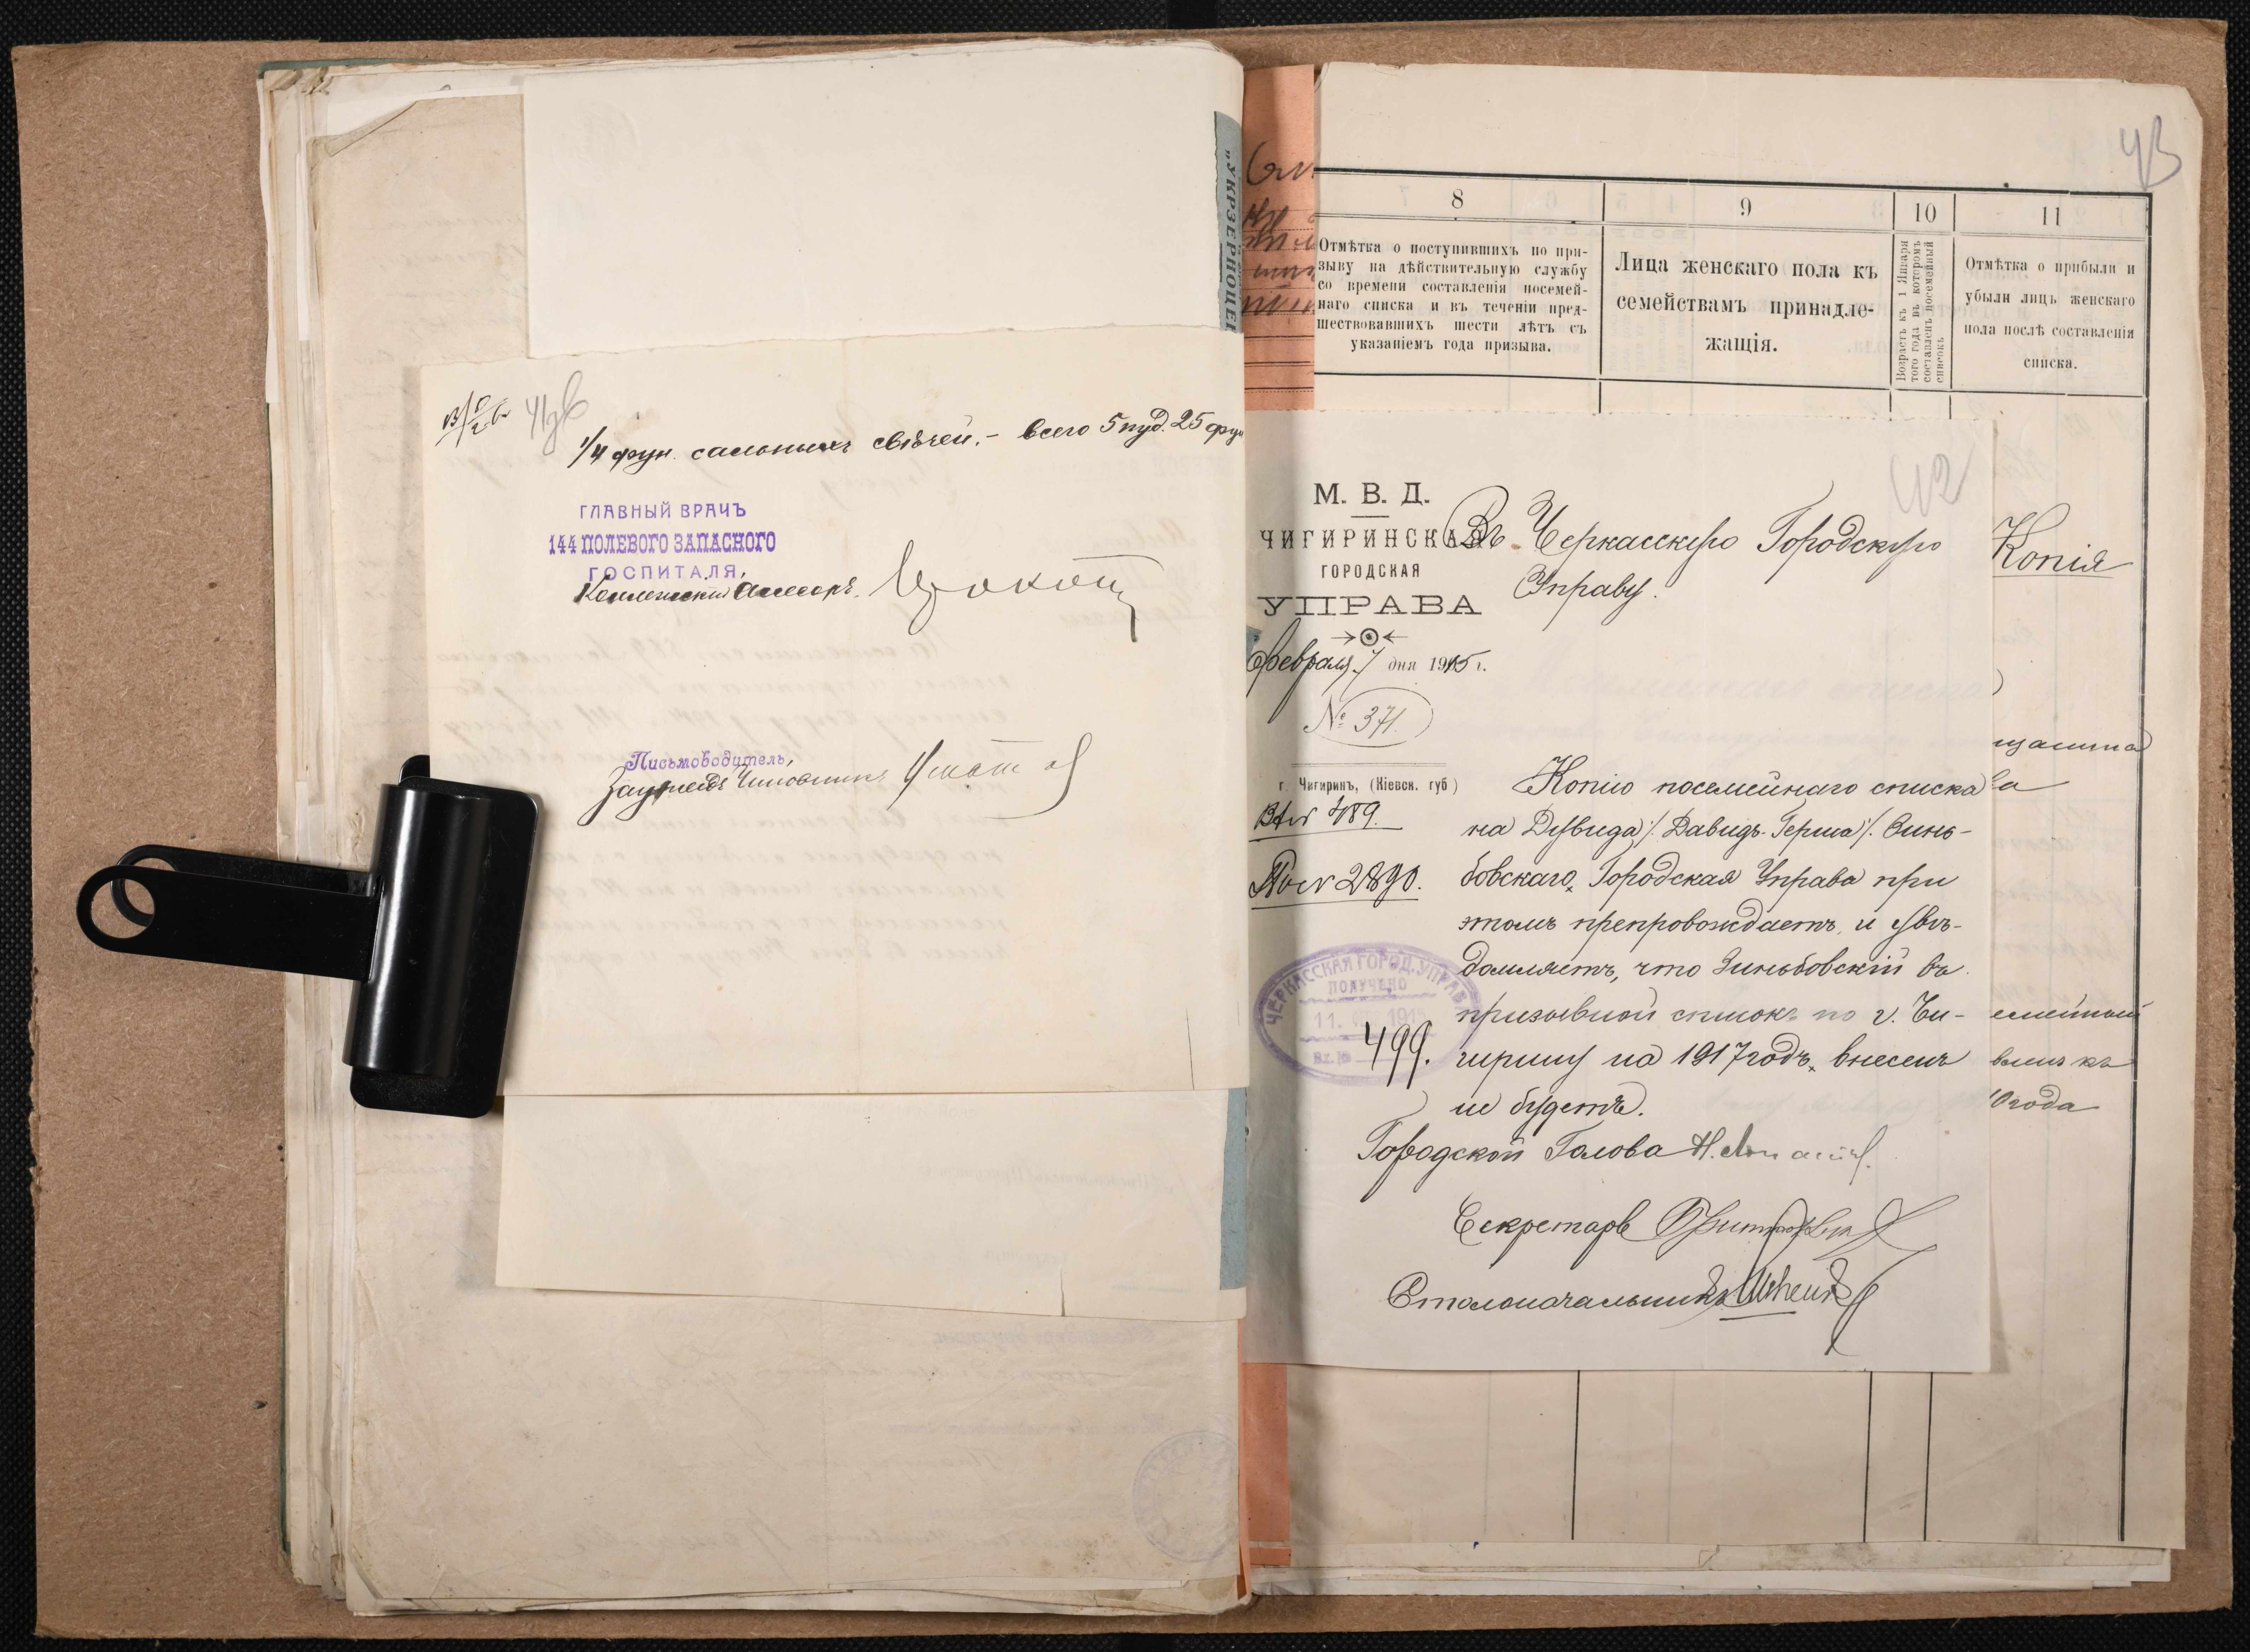 41об
1/4 фун. сальныхъ свѣчей. – всего 5 пуд. 25 фун
ГЛАВНЫЙ ВРАЧЪ
144 ПОЛЕВОГО ЗАПАСНОГО
ГОСПИТАЛЯ,
Коллежскій Ассесоръ
Письмоводитель,
Зауряд Чиновникъ
„УКРЗЕРНОЦЕ
43
8
9
10
11
Отмѣтка о поступившихъ по при-
зыву на дѣйствительную службу
со времени составленія посемей-
наго списка и въ теченіи пред-
шествовавшихъ шести лѣтъ съ
указаніемъ года призыва.
Лица женскаго пола къ
семействамъ принадле-
жащія.
Возрастъ къ 1 Января
того года въ которомъ
составленъ посемейный
списокъ
Отмѣтка о прибыли и
убыли лицъ женскаго
пола послѣ составленія
списка.
42
М. В. Д.
ЧИГИРИНСКАЯ
ГОРОДСКАЯ
УПРАВА
Февраля 7 дня 1915 г.
№ 371.
г. Чигиринъ, (Кіевск. губ)
Вх № 489.
По № 2890.
Въ Черкасскую Городскую
Управу.
Копію посемейнаго списка
на Дувида /: Давидъ-Герша :/ Зинь-
бовскаго, Городская Управа при
этомъ препровождаетъ, и увѣ-
домляетъ, что Зиньбовскій въ
призывной списокъ по г. Чи-
гирину на 1917 годъ, внесенъ
не будетъ.
ЧЕРКАССКАЯ ГОРОД. УПРАВА
ПОЛУЧЕНО
11. 1915
Вх. №
499.
Городской Голова
Секретарь
Столоначальникъ
Копія
щанина
ва
емейный
вленъ къ
10 года